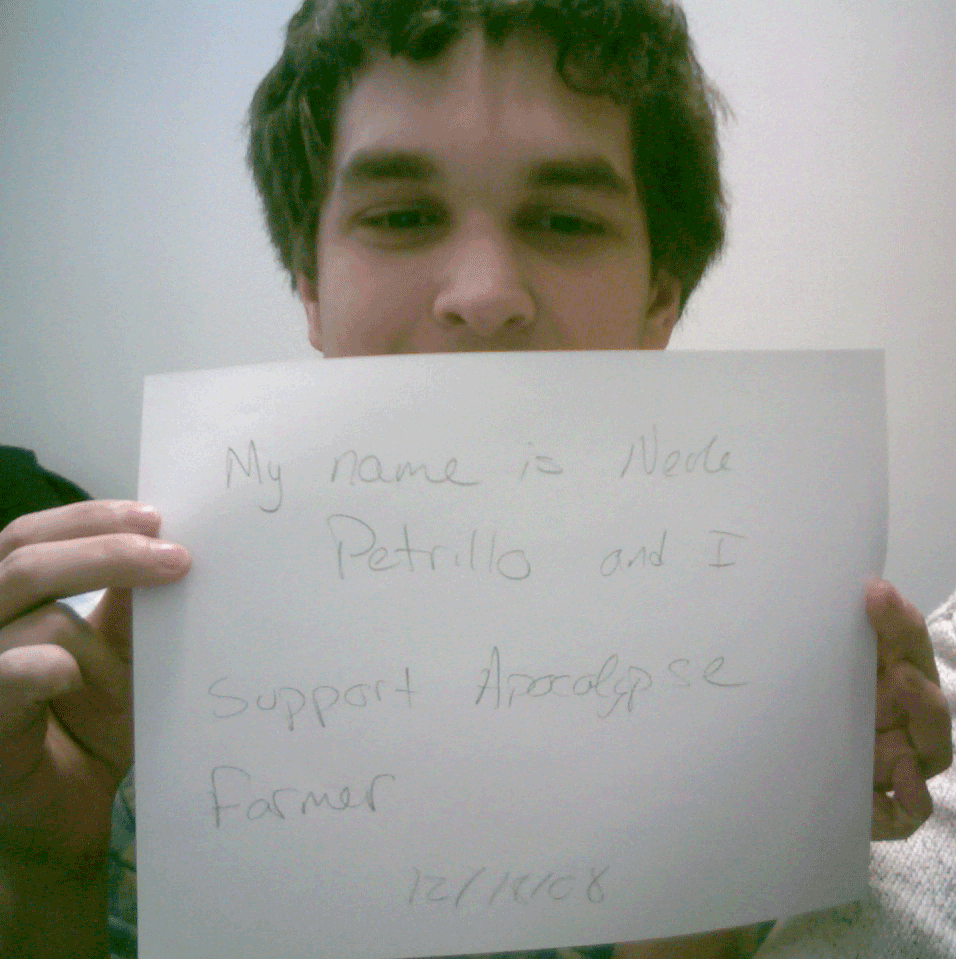 My name is
Petrillo and I
Support Apocalypse
Farmer
12/18/08